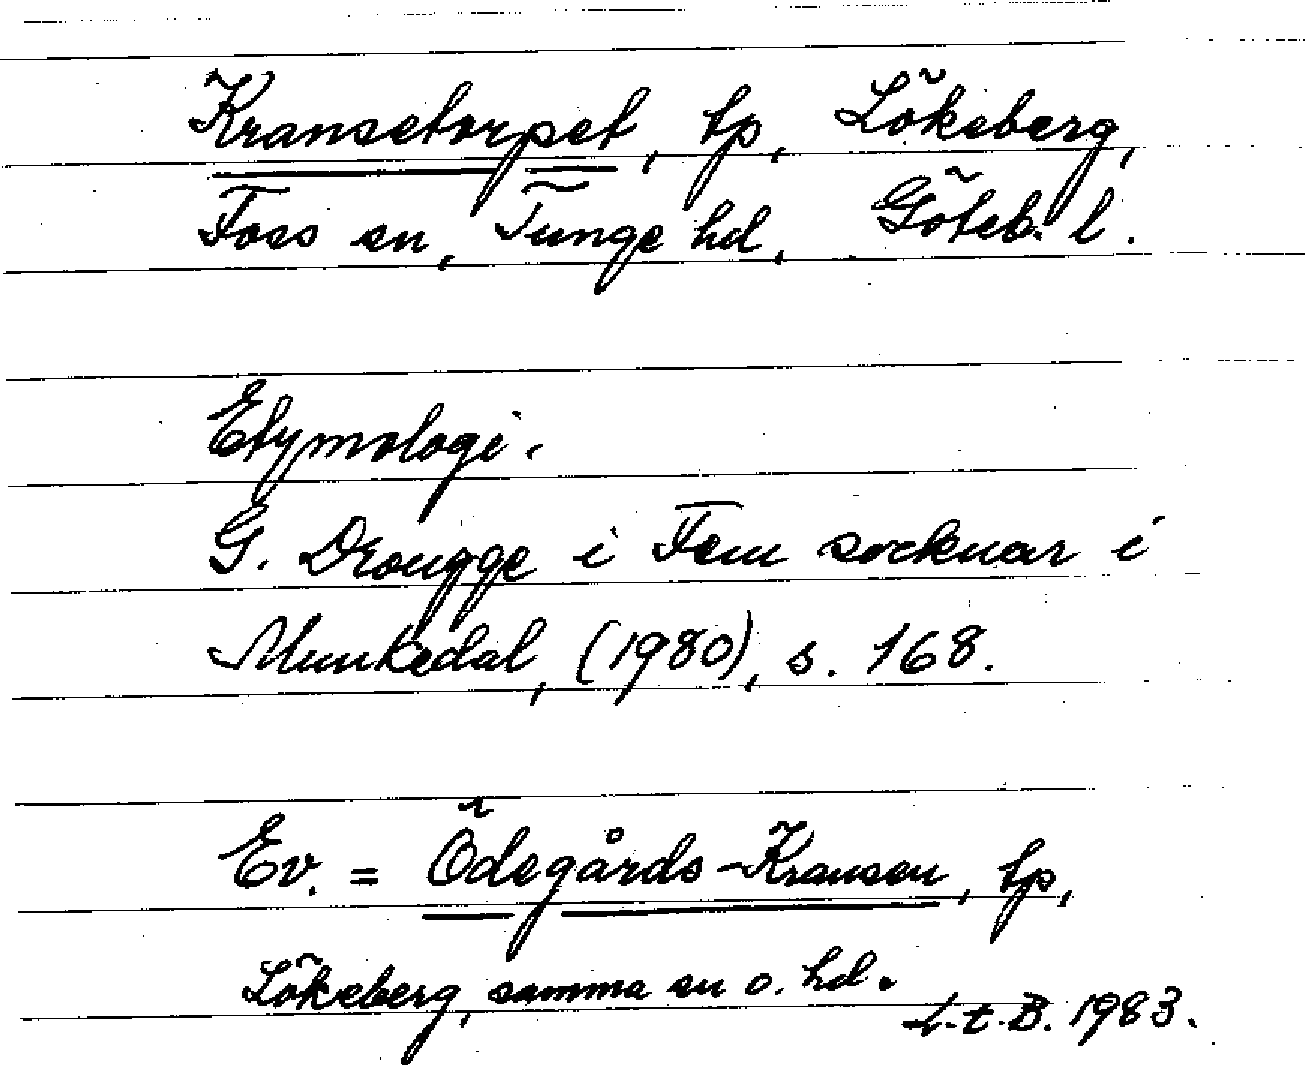 Kransetorpet, tp, Lökeberg,
Foss sn, Tunge hd, Göteb. l.
Etymologi.
G. Drougge i Fem socknar i
Munkedal, (1980), s. 168.
Ev. = Ödegårds-Kransen, tp,
Lökeberg, samma sn o. hd.
L.t.B. 1983.